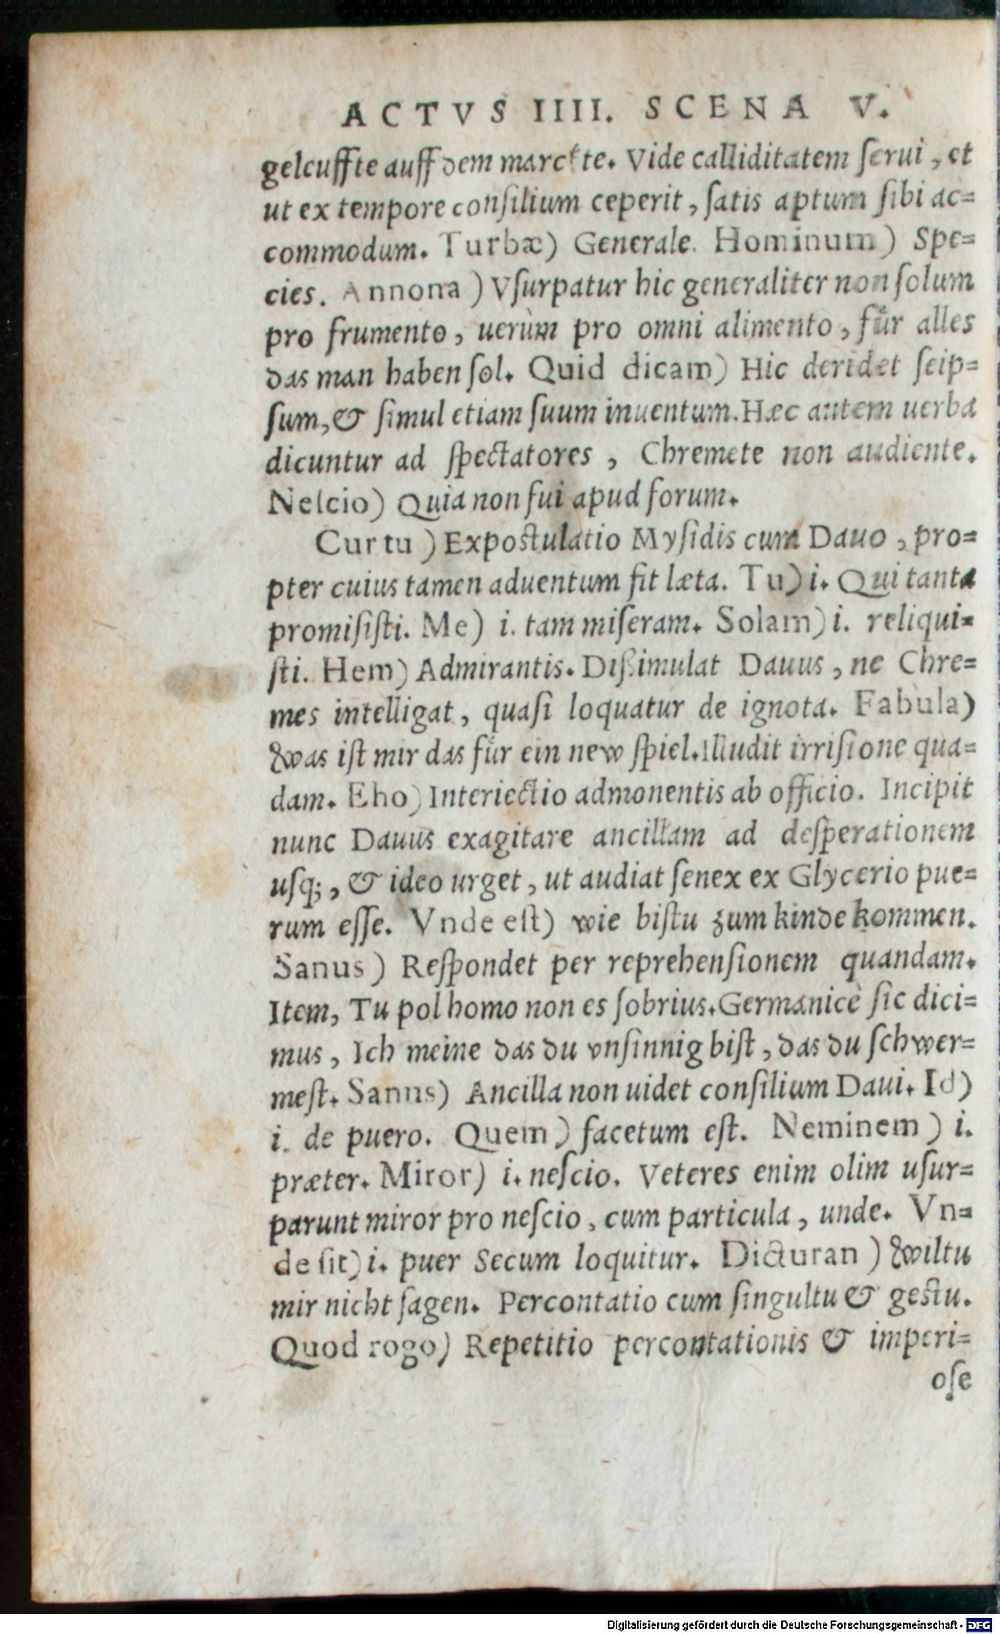 ACTVS IIII. SCENA V.
geleuffte auff dem marckte. Vide calliditatem serui, et
ut ex tempore consilium ceperit, satis aptum sibi ac=
commodum. Turbæ) Generale. Hominum) Spe=
cies. Annona) Vsurpatur hic generaliter non solum
pro frumento, uerùm pro omni alimento, für alles
das man haben sol. Quid dicam) Hic deridet seip=
sum, & simul etiam suum inuentum. Hæc autem uerba
dicuntur ad spectatores, Chremete non audiente.
Nescio) Quia non fui apud forum.
Cur tu) Expostulatio Mysidis cum Dauo, pro=
pter cuius tamen aduentum fit læta. Tu) i. Qui tanta
promisisti. Me) i. tam miseram. Solam) i. reliqui=
sti. Hem) Admirantis. Dißimulat Dauus, ne Chre=
mes intelligat, quasi loquatur de ignota. Fabula)
was ist mir das für ein new spiel. Illudit irrisione qua=
dam. Eho) Interiectio admonentis ab officio. Incipit
nunc Dauus exagitare ancillam ad desperationem
usq;, & ideo urget, ut audiat senex ex Glycerio pue=
rum esse. Vnde est) wie bistu zum kinde kommen.
Sanus) Respondet per reprehensionem quandam.
Item, Tu pol homo non es sobrius. Germanicè sic dici=
mus, Ich meine das du vnsinnig bist, das du schwer=
mest. Sanus) Ancilla non uidet consilium Daui. Id)
i. de puero. Quem) facetum est. Neminem) i.
præter. Miror) i. nescio. Veteres enim olim usur=
parunt miror pro nescio, cum particula, unde. Vn=
de sit) i. puer Secum loquitur. Dicturan) wiltu
mir nicht sagen. Percontatio cum singultu & gestu.
Quod rogo) Repetitio percontationis & imperi=
ose
Digitalisierung gefördert durch die Deutsche Forschungsgemeinschaft - DFG